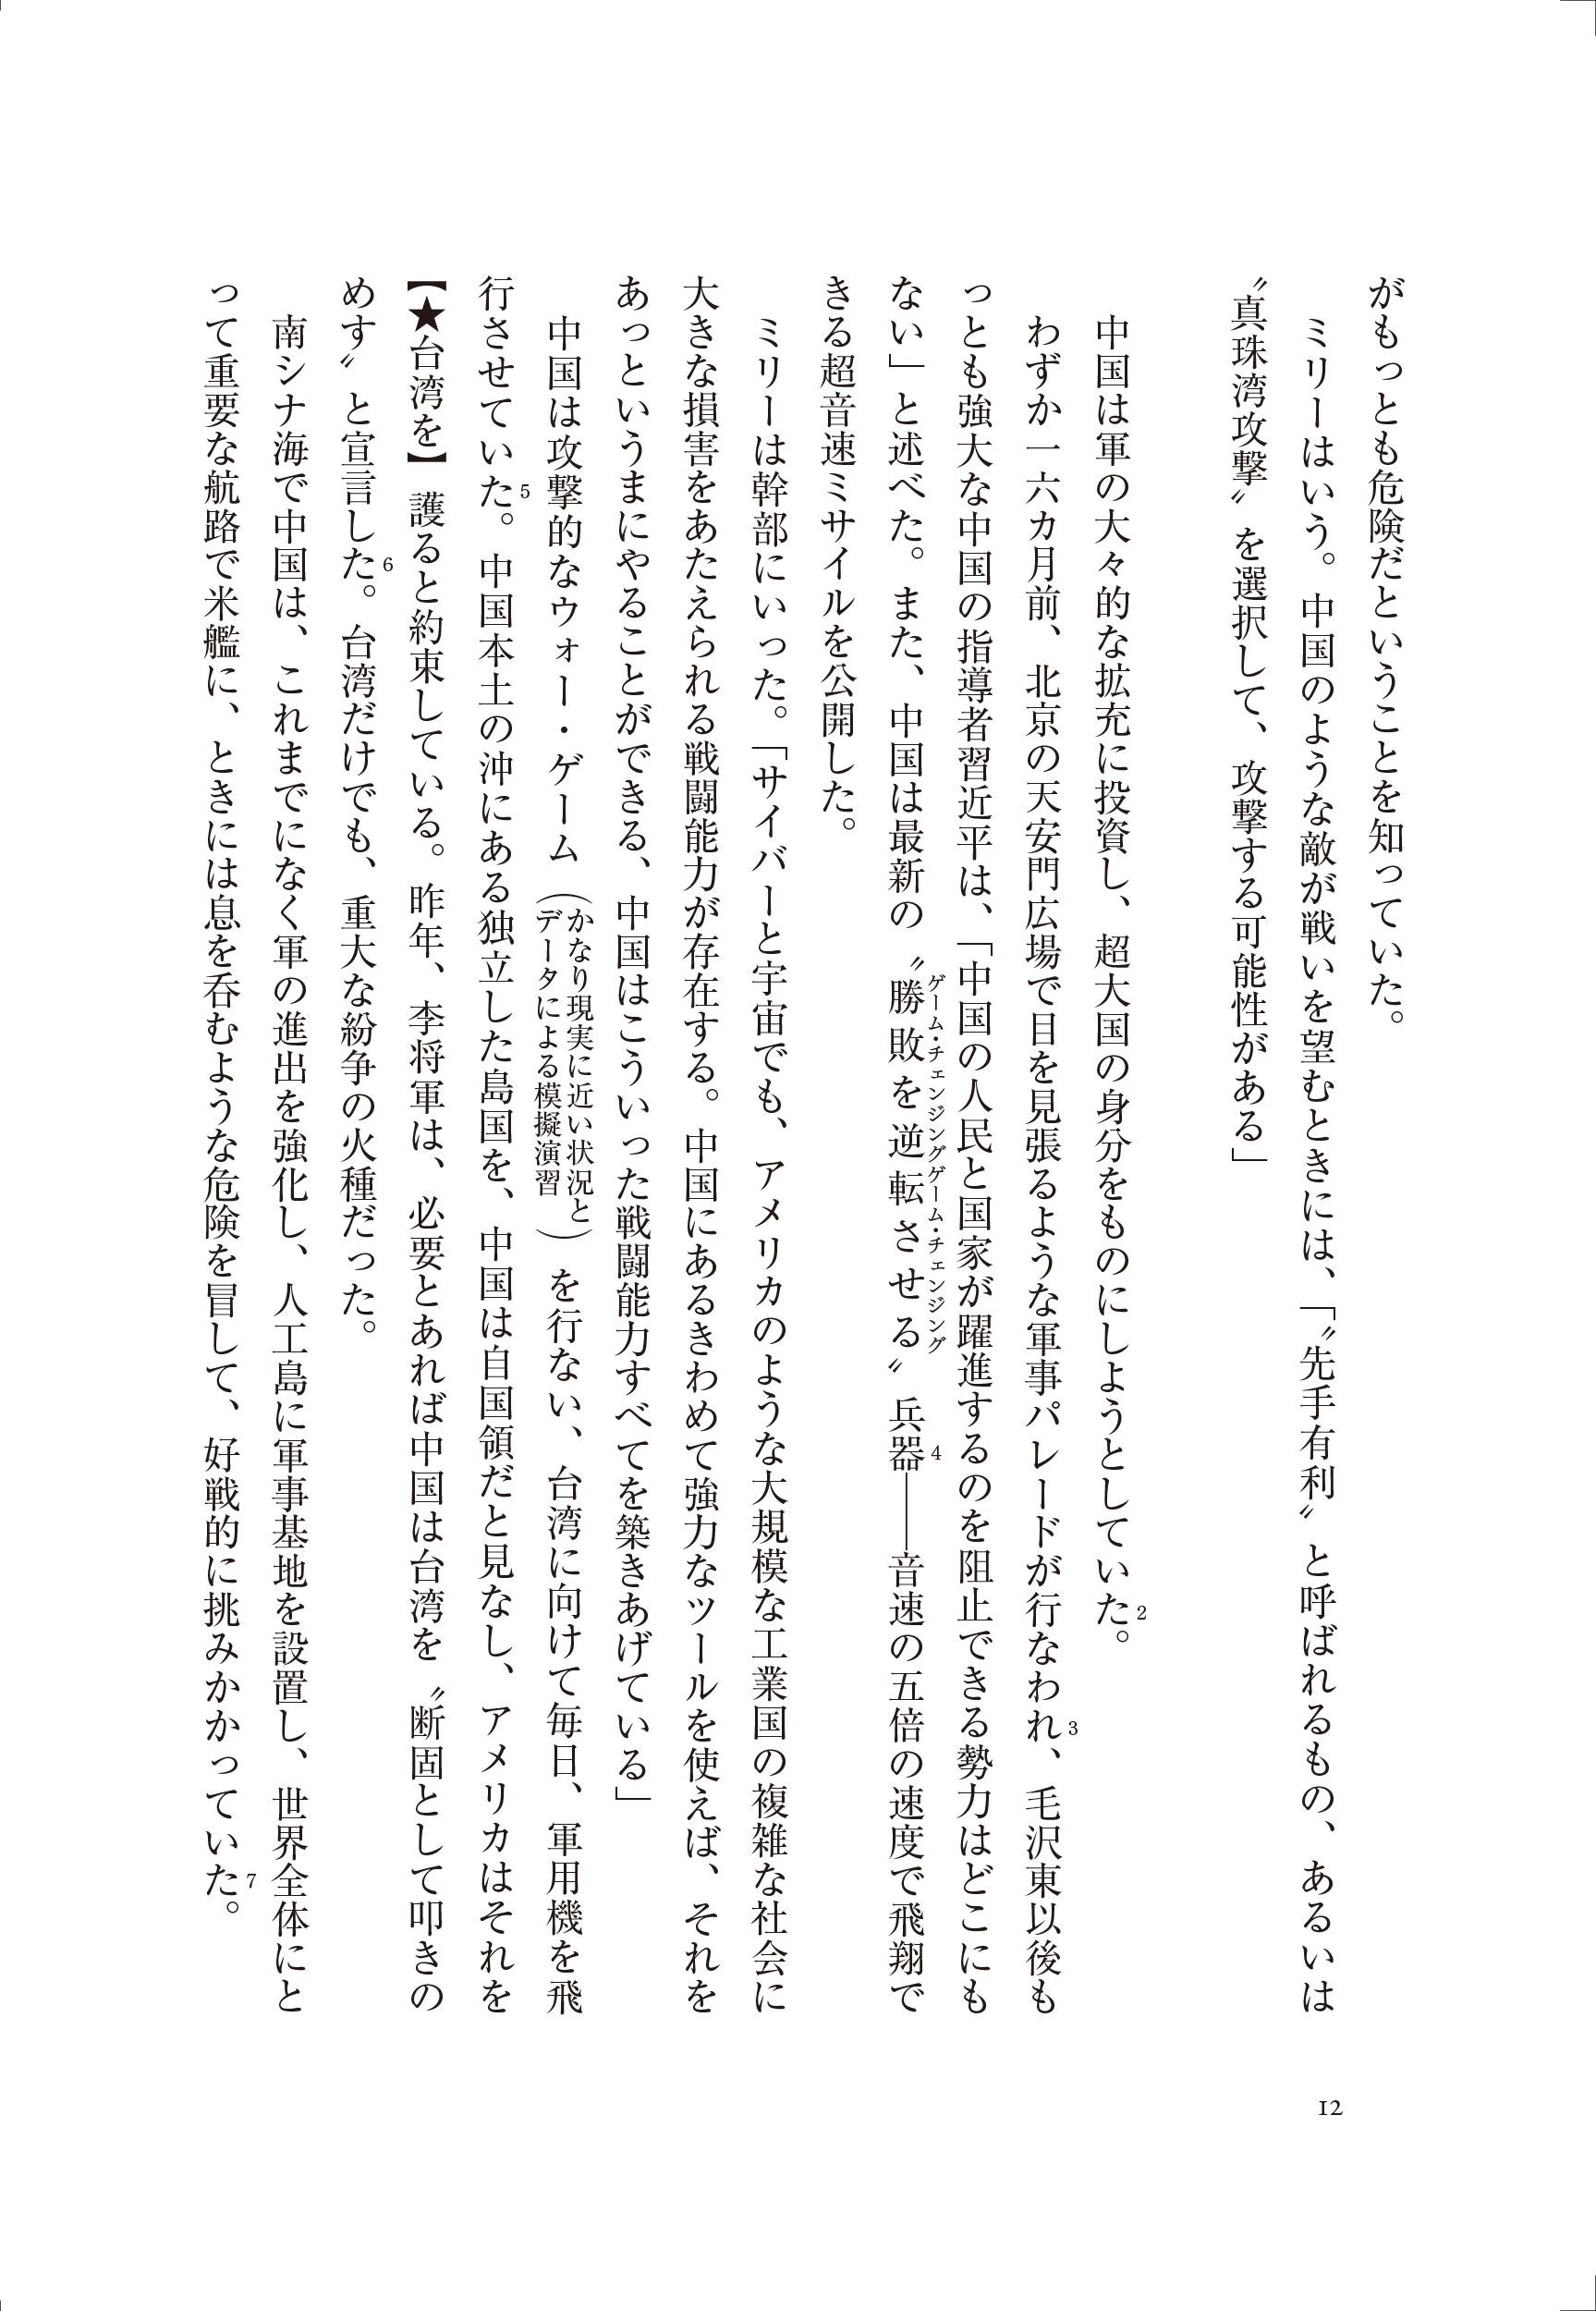 がもっとも危険だということを知っていた。
　ミリーはいう。中国のような敵が戦いを望むときには、「〝先手有利〟と呼ばれるもの、あるいは
〝真珠湾攻撃〟を選択して、攻撃する可能性がある」
　中国は軍の大々的な拡充に投資し、超大国の身分をものにしようとしていた2。
　わずか一六カ月前、北京の天安門広場で目を見張るような軍事パレードが行なわれ3、毛沢東以後も
っとも強大な中国の指導者習近平は、「中国の人民と国家が躍進するのを阻止できる勢力はどこにも
ない」と述べた。また、中国は最新の〝勝敗を逆転させる〟兵器4――音速の五倍の速度で飛翔で
ゲーム・チェンジングゲーム・チェンジング
きる超音速ミサイルを公開した。
　ミリーは幹部にいった。「サイバーと宇宙でも、アメリカのような大規模な工業国の複雑な社会に
大きな損害をあたえられる戦闘能力が存在する。中国にあるきわめて強力なツールを使えば、それを
あっというまにやることができる、中国はこういった戦闘能力すべてを築きあげている」
　中国は攻撃的なウォー・ゲーム（かなり現実に近い状況とデータによる模擬演習）を行ない、台湾に向けて毎日、軍用機を飛
行させていた5。中国本土の沖にある独立した島国を、中国は自国領だと見なし、アメリカはそれを
【★台湾を】護ると約束している。昨年、李将軍は、必要とあれば中国は台湾を〝断固として叩きの
めす〟と宣言した6。台湾だけでも、重大な紛争の火種だった。
　南シナ海で中国は、これまでになく軍の進出を強化し、人工島に軍事基地を設置し、世界全体にと
って重要な航路で米艦に、ときには息を呑むような危険を冒して、好戦的に挑みかかっていた7。
12